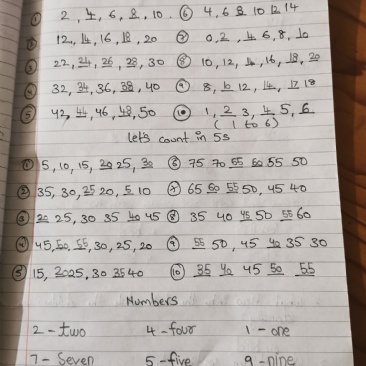 ① 2, 4, 6, 8, 10. ⑥ 4, 6 8 10 12 14
② 12, 14, 16, 18, 20 ⑦ 0, 2, 4 6, 8, 10
③ 22, 24, 26, 28, 30 ⑧ 10, 12, 14, 16, 18, 20
④ 32, 34, 36, 38, 40 ⑨ 8, 10 12, 14, 17 18
⑤ 42, 44, 46, 48, 50 ⑩ 1, 2 3, 4 5, 6
(1 to 6)
let's count in 5s
① 5, 10, 15, 20 25, 30 ⑥ 75 70 65 60 55 50
② 35, 30, 25 20, 5 10 ⑦ 65 60 55 50, 45 40
③ 20 25, 30 35 40 45 ⑧ 35 40 45 50 55 60
④ 45, 50, 55, 30, 25, 20 ⑨ 55 50, 45 40 35 30
⑤ 15, 20 25, 30 35 40 ⑩ 35 40 45 50 55
Numbers
2 - two 4 - four 1 - one
7 - Seven 5 - five 9 - nine